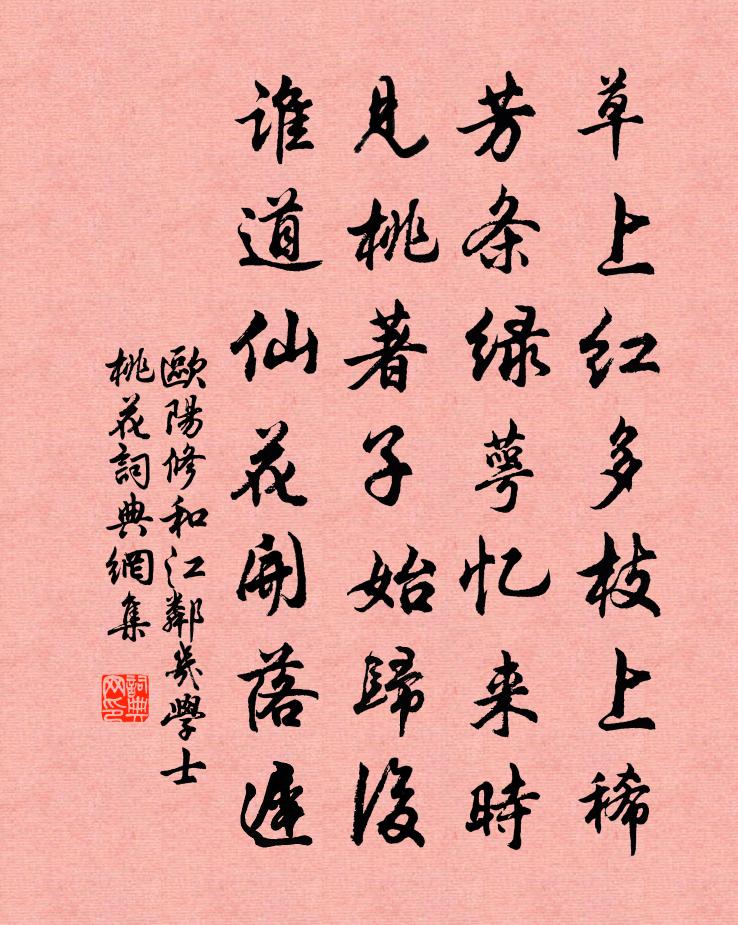 草上红多枝上稀
芳条绿萼忆来时
见桃著子始歸後
谁道仙花開落遲
歐陽修和江鄰幾學士
桃花詞典網集
詞典
网印